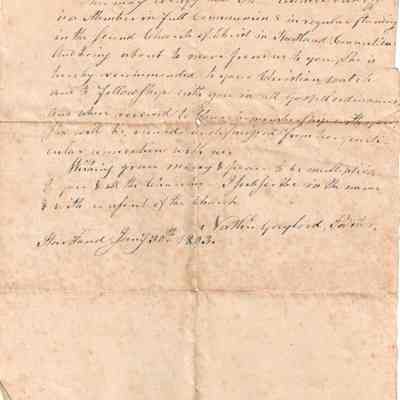 This may certify that
is a Member in full Communion & in regular standing
in the second Church of Christ in Hartland Connecticut
And being about to move from us to you, She is
hereby recommended to your Christian watch
and to Fellowship with you in all Gospel ordinances,
And when received to your membership with you
She will be viewed as discharged from her particular
cular connection with us.
Wishing grace mercy & peace to be multiplied
to you & all the brethren. I subscribe in the name
& with consent of the Church
Nathl Gaylord, Pastor.
Hartland Jany 30th 1803.